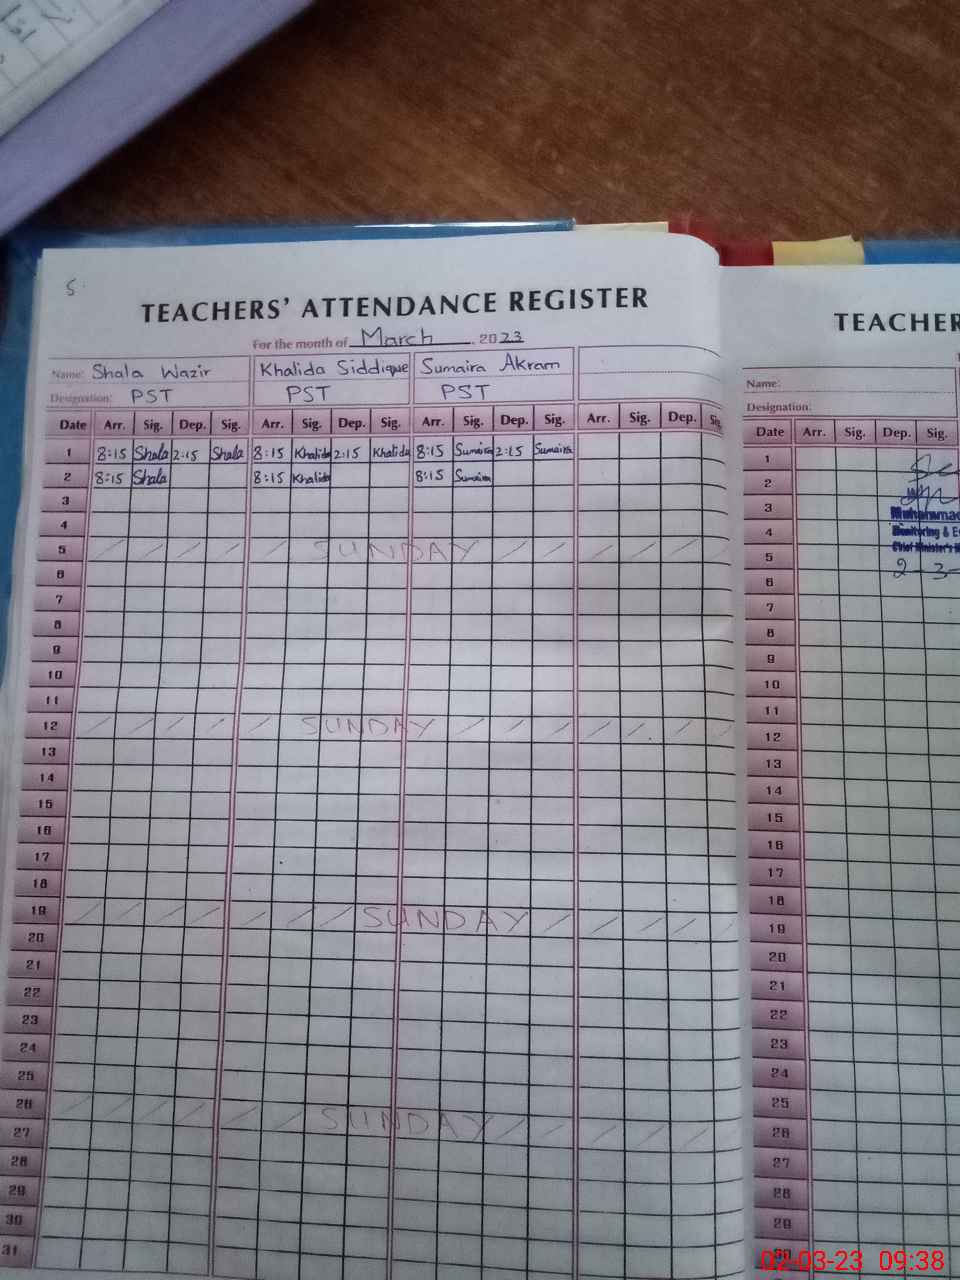 5.
TEACHERS' ATTENDANCE REGISTER
For the month of March 2023
Name: Shala Wazir Khalida Siddique Sumaira Akram
Designation: PST PST PST
Date Arr. Sig. Dep. Sig. Arr. Sig. Dep. Sig. Arr. Sig. Dep. Sig. Arr. Sig. Dep. Sig.
1 8:15 Shala 2:15 Shala 8:15 Khalida 2:15 Khalida 8:15 Sumaira 2:15 Sumaira
2 8:15 Shala 8:15 Khalida 8:15 Sumaira
3
4
5 SUNDAY
6
7
8
9
10
11
12 SUNDAY
13
14
15
16
17
18
19 SUNDAY
20
21
22
23
24
25
26 SUNDAY
27
28
29
30
31
TEACHER
Name:
Designation:
Date Arr. Sig. Dep. Sig.
1
2
3 Muhammad
4 Monitoring & E
5 Chief Minister's
6 2-3-
7
8
9
10
11
12
13
14
15
16
17
18
19
20
21
22
23
24
25
26
27
28
29
02-03-23 09:38